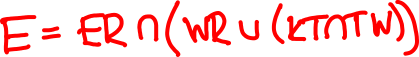 E = ER ∩ (WR ∪ (KT ∩ TW))